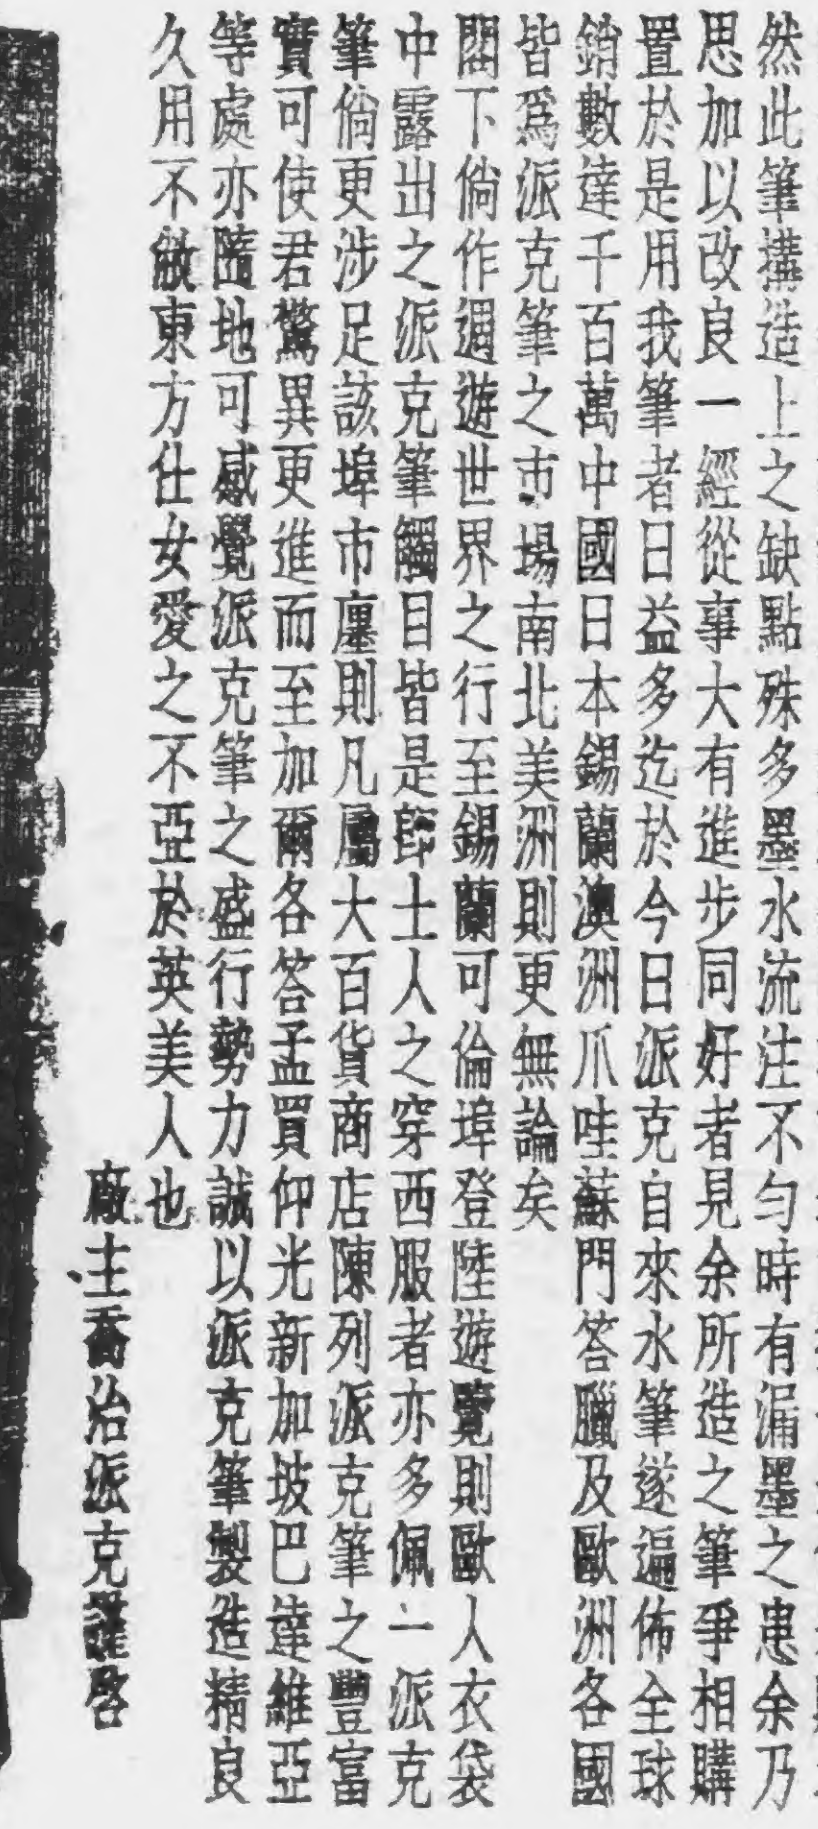 然此筆搆造上之缺點殊多墨水流注不勻時有漏墨之患余乃
思加以改良一經從事大有進步同好者見余所造之筆爭相購
置於是用我筆者日益多迄於今日派克自來水筆遂遍佈全球
銷數達千百萬中國日本錫蘭澳洲爪哇蘇門答臘及歐洲各國
皆爲派克筆之市場南北美洲則更無論矣
閣下倘作週遊世界之行至錫蘭可倫埠登陸遊覽則歐人衣袋
中露出之派克筆觸目皆是即土人之穿西服者亦多佩一派克
筆倘更涉足該埠市廛則凡屬大百貨商店陳列派克筆之豐富
實可使君驚異更進而至加爾各答孟買仰光新加坡巴達維亞
等處亦隨地可感覺派克筆之盛行勢力誠以派克筆製造精良
久用不敝東方仕女愛之不亞於英美人也
廠主喬治派克謹啓